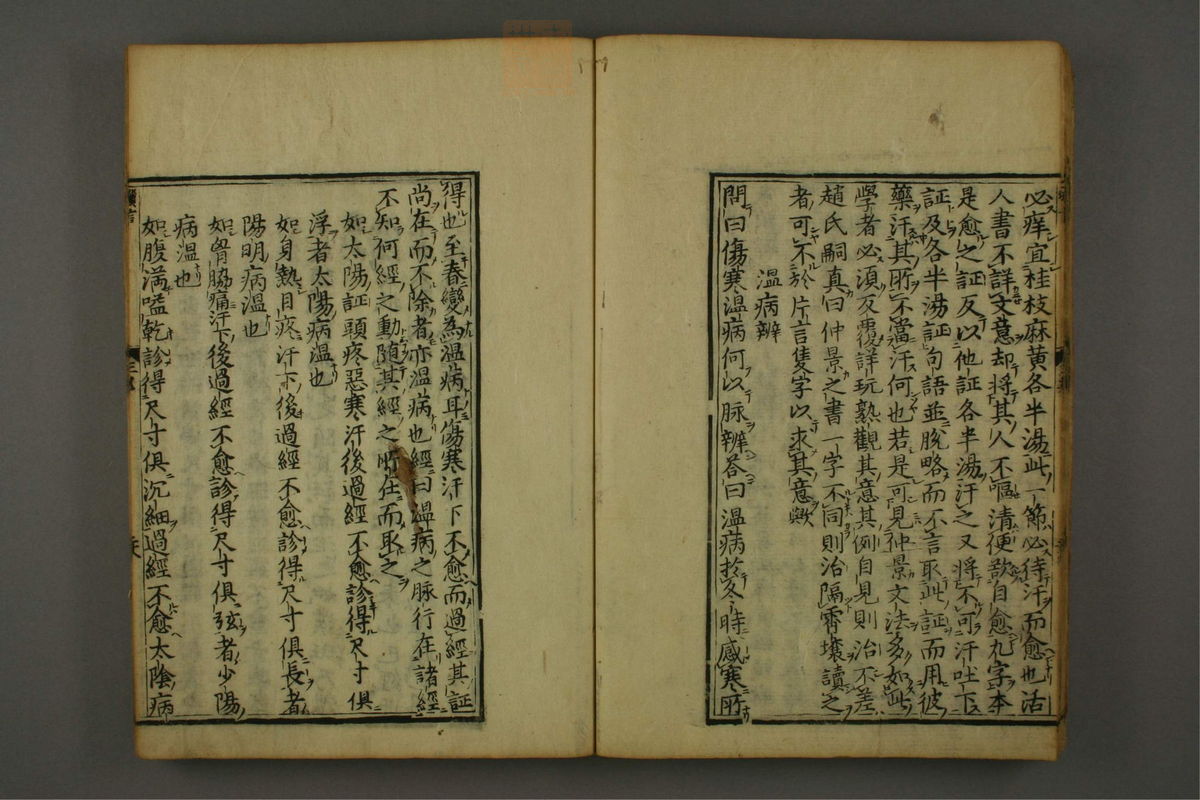 必痒宜桂枝麻黄各半湯此一節必待汗而愈也活
人書不詳文意却将其人不嘔清便欲自愈九字本
是愈之証反以他証各半湯汗之又将不可汗吐下
証及各半湯証句語並脫略而不言取此証而用彼
藥汗其所不當汗何也若是可見仲景文法多如此
學者必須反覆詳玩熟觀其意其例自見則治不差
趙氏嗣真曰仲景之書一字不同則治隔霄壤讀之
者可不於片言隻字以求其意歟
温病辨
問曰傷寒温病何以脉辨荅曰温病於冬時感寒所
得也至春變為温病耳傷寒汗下不愈而過經其証
尚在而不除者亦温病也經曰温病之脉行在諸經
不知何經之動随其經之所在而取之
如太陽証頭疼惡寒汗後過經不愈診得尺寸俱
浮者太陽病温也
如身熱目疼汗下後過經不愈診得尺寸俱長者
陽明病温也
如胷脇痛汗下後過經不愈診得尺寸俱弦者少陽
病温也
如腹滿嗌乾診得尺寸俱沉細過經不愈太陰病